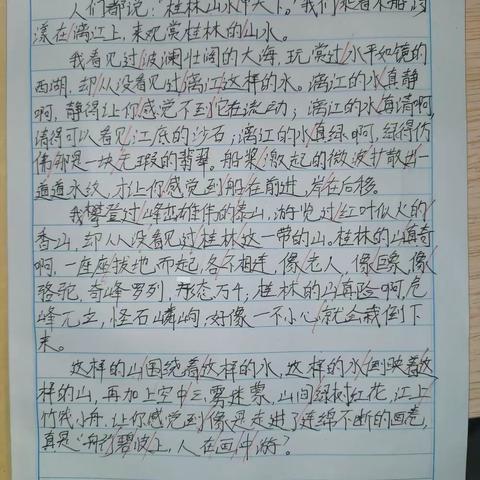 人们都说："桂林山水甲天下。"我们乘着木船荡
漾在漓江上，来观赏桂林的山水。
我看见过波澜壮阔的大海，玩赏过水平如镜的
西湖，却从没看见过漓江这样的水。漓江的水真静
啊，静得让你感觉不到它在流动；漓江的水真清啊，
清得可以看见江底的沙石；漓江的水真绿啊，绿得仿
佛那是一块无瑕的翡翠。船桨激起的微波扩散出一
道道水纹，才让你感觉到船在前进，岸在后移。
我攀登过峰峦雄伟的泰山，游览过红叶似火的
香山，却从没看见过桂林这一带的山。桂林的山真奇
啊，一座座拔地而起，各不相连，像老人，像巨象，像
骆驼，奇峰罗列，形态万千；桂林的山真险啊，危
峰兀立，怪石嶙峋，好像一不小心就会栽倒下
来。
这样的山围绕着这样的水，这样的水倒映着这
样的山，再加上空中云雾迷蒙，山间绿树红花，江上
竹筏小舟，让你感觉到像是走进了连绵不断的画卷，
真是"舟行碧波上，人在画中游"。